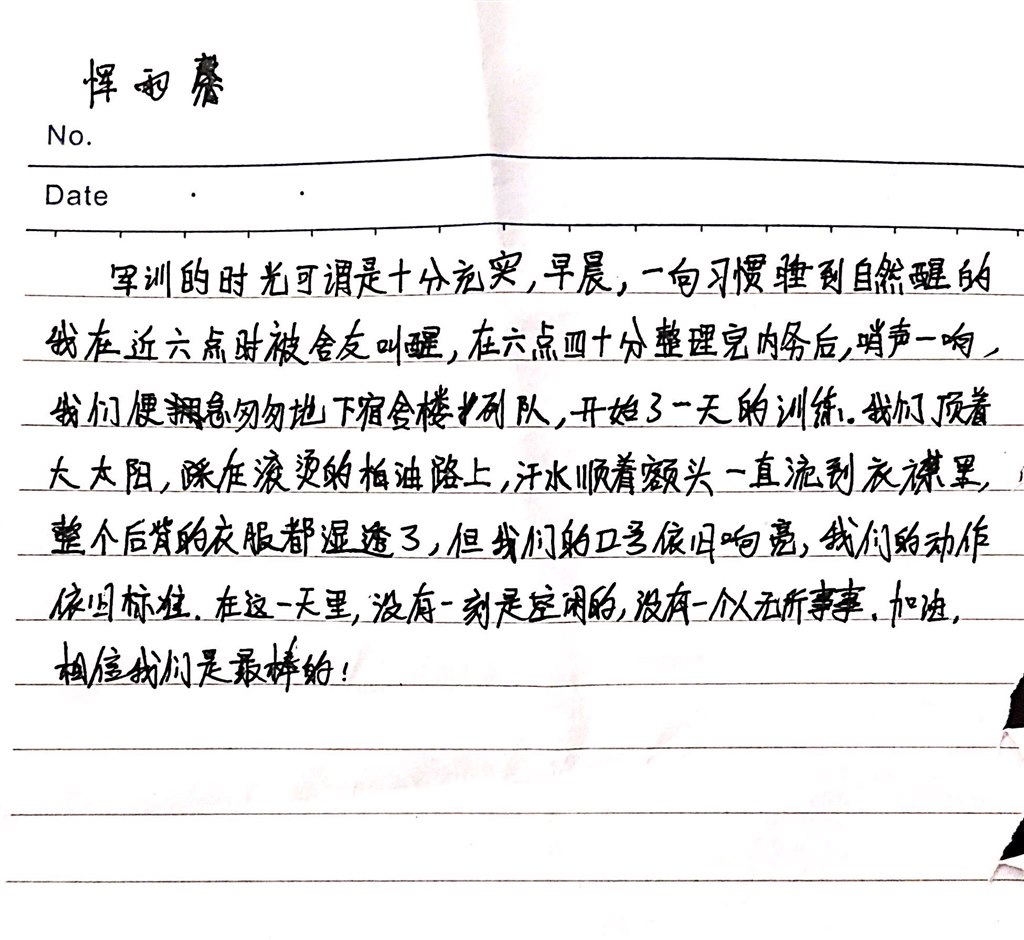 恽雨馨
No.
Date
军训的时光可谓是十分充实,早晨,一向习惯睡到自然醒的
我在近六点时被舍友叫醒,在六点四十分整理完内务后,哨声一响,
我们便急匆匆地下宿舍楼列队,开始了一天的训练.我们顶着
大太阳,踩在滚烫的柏油路上,汗水顺着额头一直流到衣襟里,
整个后背的衣服都湿透了,但我们的口号依旧响亮,我们的动作
依旧标准.在这一天里,没有一刻是空闲的,没有一个人无所事事.加油,
相信我们是最棒的!